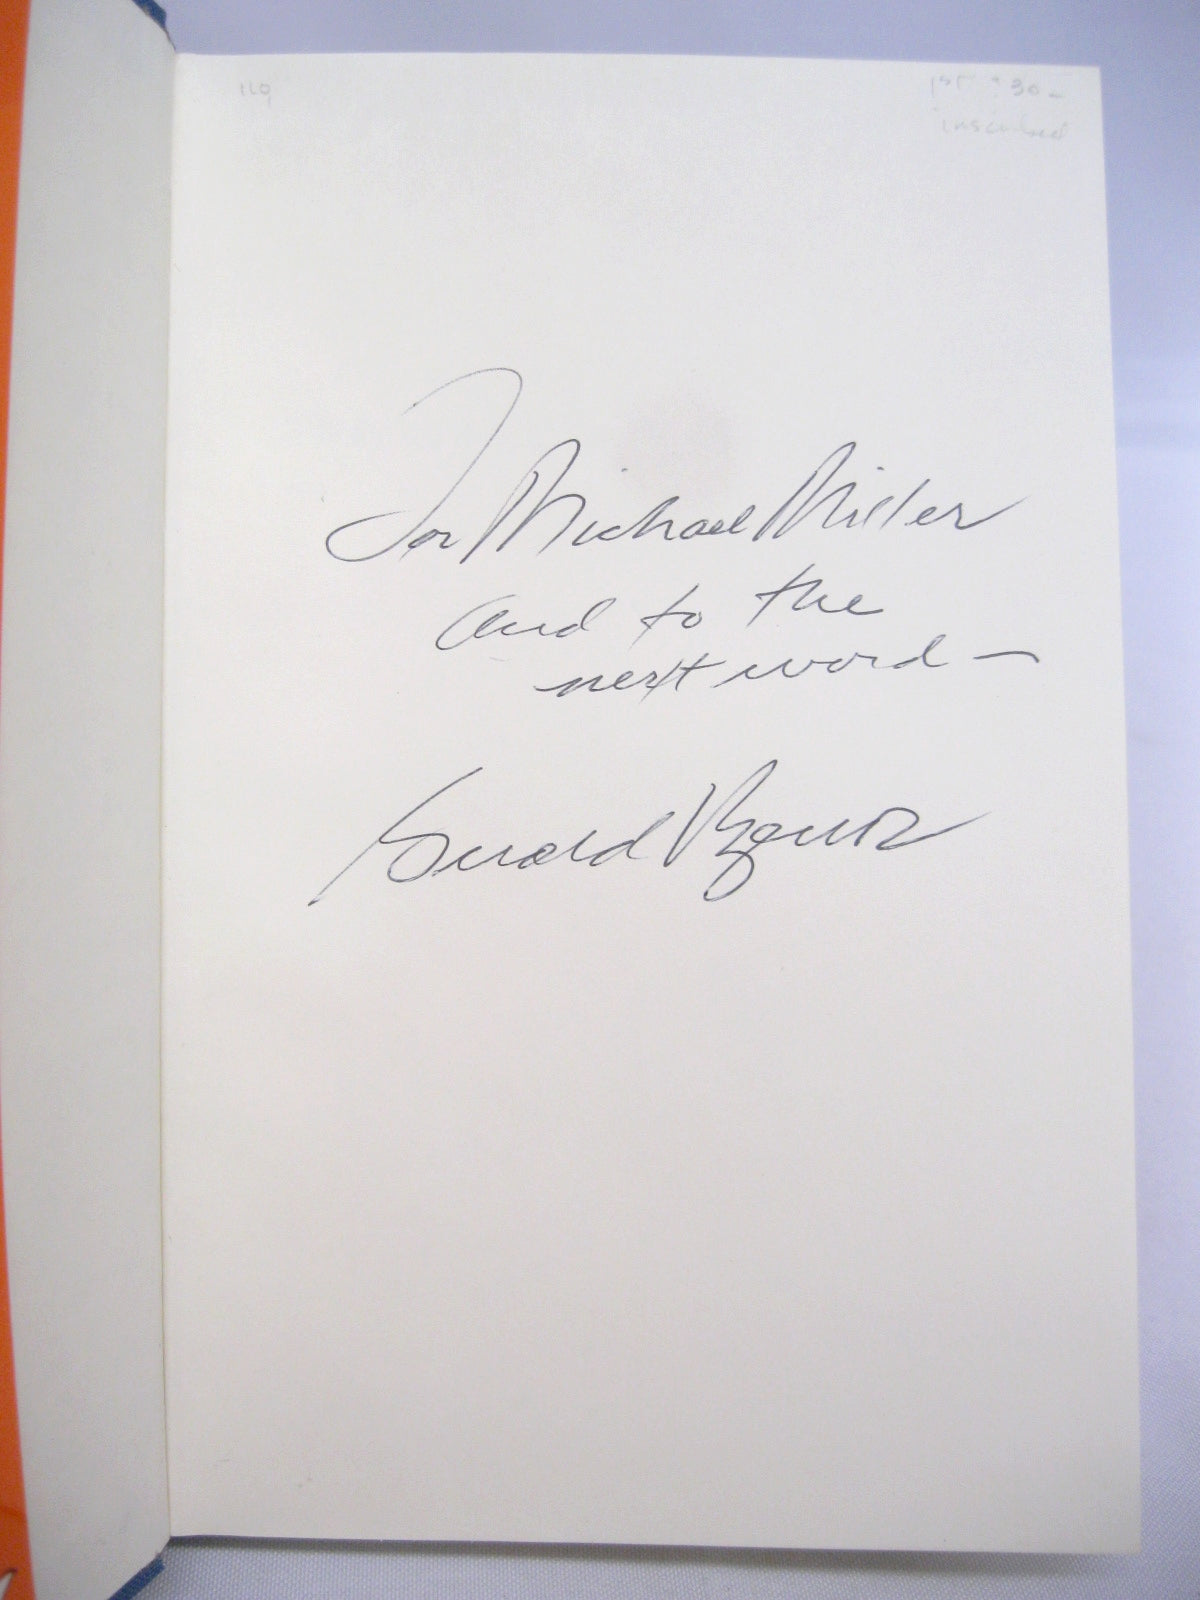 119
1st $30-
inscribed
For Michael Miller
and to the
next word —
Gerald